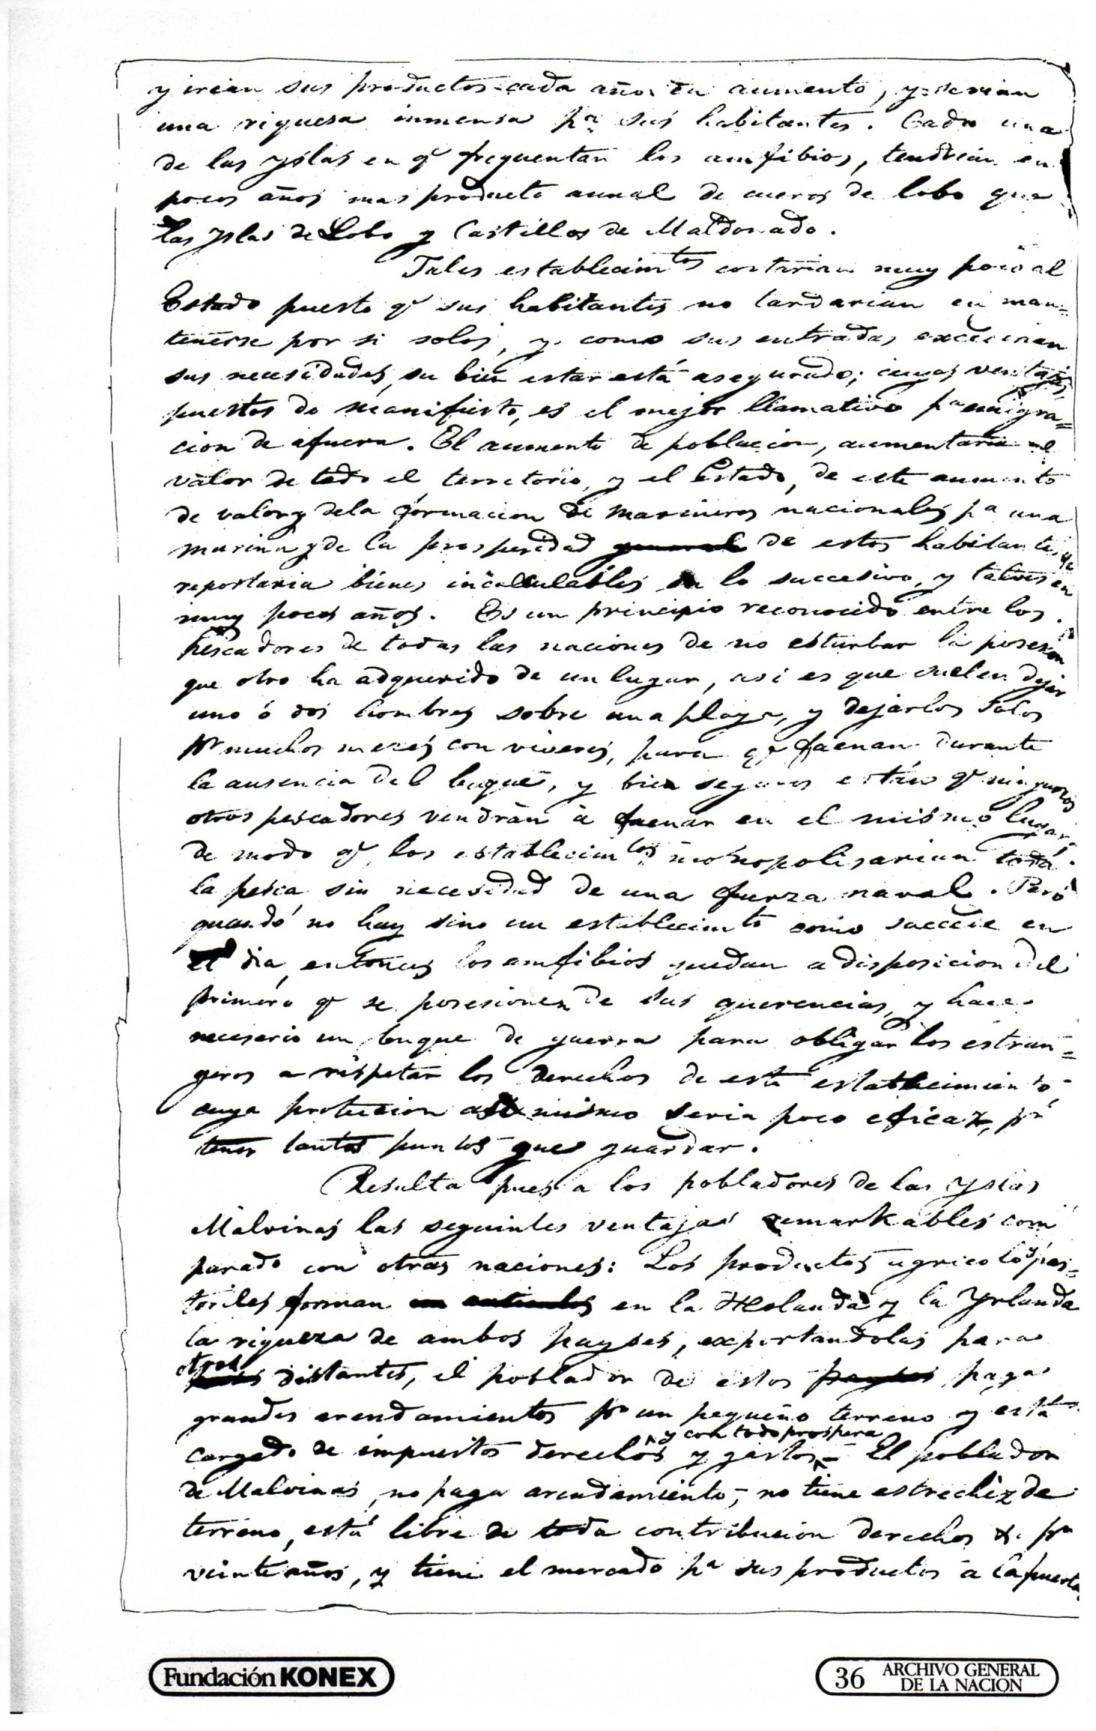 y irían sus productos cada año en aumento, y serian
una riquesa inmensa pa. sus habitantes. Cada una
de las Yslas en qe frequentan los amfibios, tendrian en
pocos años mas producto anual de cueros de lobo que
las Yslas de Lobo y Castillos de Maldonado.
Tales establecimtos costarian muy poco al
Estado puesto qe sus habitantes no tardarian en man=
tenerse por si solos, y como sus entradas excederian
sus necesidades, su bien estar está asegurado; cuyas ventajas
puestos de manifiesto, es el mejor llamativo pa emigra=
cion de afuera. El aumento de poblacion, aumentaria el
valor de todo el territorio, y el Estado, de este aumento
de valor y dela formacion de marineros nacionales pa una
marina y de la prosperidad general de estos habitantes,
reportaria bienes incalculables en lo succesivo, y talves en
muy pocos años. Es un principio reconocido entre los
pescadores de todas las naciones de no esturbar la posesion
que otro ha adquerido de un lugar, asi es que suelen dejar
uno ó dos hombres sobre una playa, y dejarlos solos
pr muchos mezes con viveres, para qe faenan durante
la ausencia del buque, y bien seguros están qe ningunos
otros pescadores vendrán à faenar en el mismo lugar.
de modo qe los establecimtos monopolisarian toda
la pesca sin necesidad de una fuerza naval. Pero
quando no hay sino un establecimto como succede en
el dia, entonces los amfibios quedan a disposicion del
primero qe se posesionen de sus querencias, y hace
necesario un buque de guerra para obligar los estran=
geros a respetar los derechos de este establecimiento
cuya proteccion asi mismo seria poco eficaz, pr
tener tantos puntos que guardar.
Resulta pues a los pobladores de las Yslas
Malvinas las seguintes ventajas remarkables com
parado con otras naciones: Los productos agricolos pas=
toriles forman en articulos en la Holanda y la Yrlanda
la riqueza de ambos payses, exportandolas para
otros
distantes, el poblador de estos payses paga
grandes arendamientos pr un pequeño terreno y está
y con todo prospera
cargado de impuestos derechos y gastos - El poblador
de Malvinas, no paga arendamiento, no tiene estrechiz de
terreno, está libre de toda contribucion derechos &. pr
veinte años, y tiene el mercado pa sus productos à la puerta
Fundación KONEX
36 ARCHIVO GENERAL
DE LA NACION